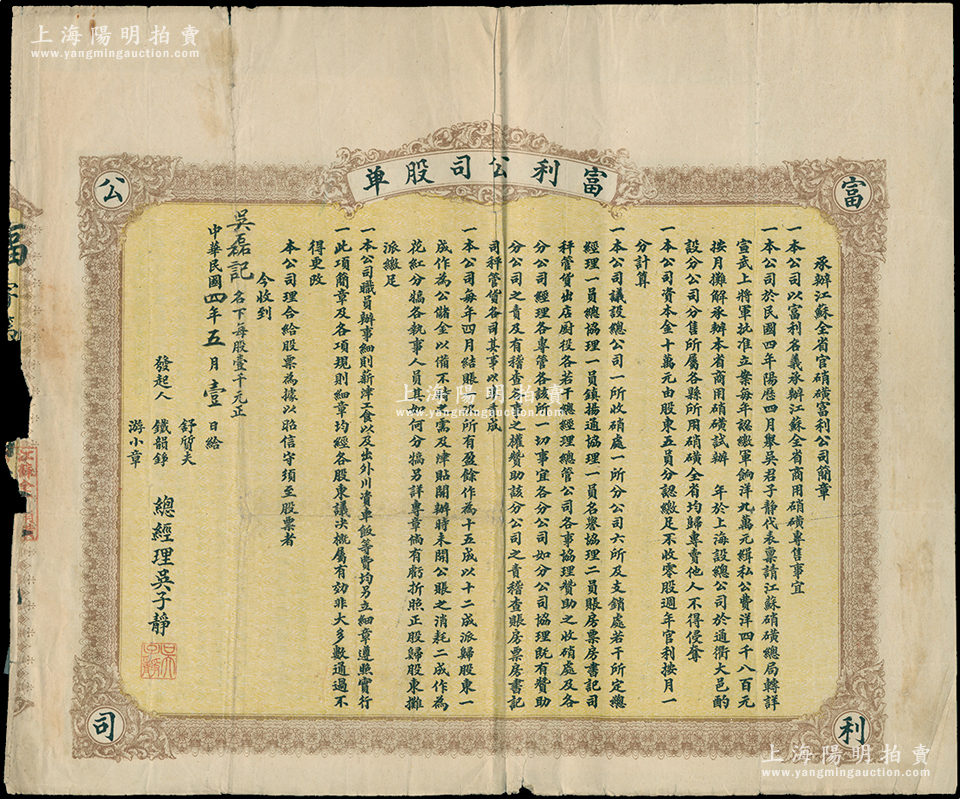 上海陽明拍賣
www.yangmingauction.com
上海陽明拍賣
www.yangmingauction.com
富利公司股單
富
利
公
司
承辦江蘇全省官硝磺富利公司簡章
一本公司以富利名義承辦江蘇全省商用硝磺專售事宜
一本公司於民國四年陽歷四月舉吳君子靜代表稟請江蘇硝磺總局轉詳
宣武上將軍批准立業每年認繳軍餉洋九萬元緝私公費洋四千八百元
按月攤解承辦本省商用硝磺試辦 年於上海設總公司於通衢大邑酌
設分公司分售所屬各縣所用硝磺全省均歸專賣他人不得侵奪
一本公司資本金十萬元由股東五員分認繳足不收零股週年官利按月一
分計算
一本公司議設總公司一所收硝處一所分公司六所及支銷處若干所定總
經理一員總協理一員鎮揚通協理一員名譽協理二員賬房票房書記司
秤管貨出店廚役各若干總經理總管公司各事協理贊助之收硝處及各
分公司經理各專管各該所一切事宜各分公司如分公司協理既有贊助
分公司之責及有稽查各事之權贊助該分公司之責稽查賬房票房書記
司秤管貨各司其事以專責成
一本公司每年四月結賬後所有盈餘作為十五成以十二成派歸股東一
成作為公儲金以備不時之需及津貼開辦時未開公賬之消耗二成作為
花紅分犒各執事人員其如何分犒另詳專章倘有虧折照正股歸股東攤
派繳足
一本公司職員辦事細則薪津工食以及出外川資車飯等費均另立細章遵照實行
一此項簡章及各項規則細章均經各股東議决概屬有効非大多數通過不
得更改
本公司理合給股票為據以昭信守須至股票者
今收到
吳磊記 名下每股壹千元正
中華民國四年五月壹日給
發起人
舒質夫
鐵韻錚
游小章
總經理吳子靜
上海陽明拍賣
www.yangmingauction.com